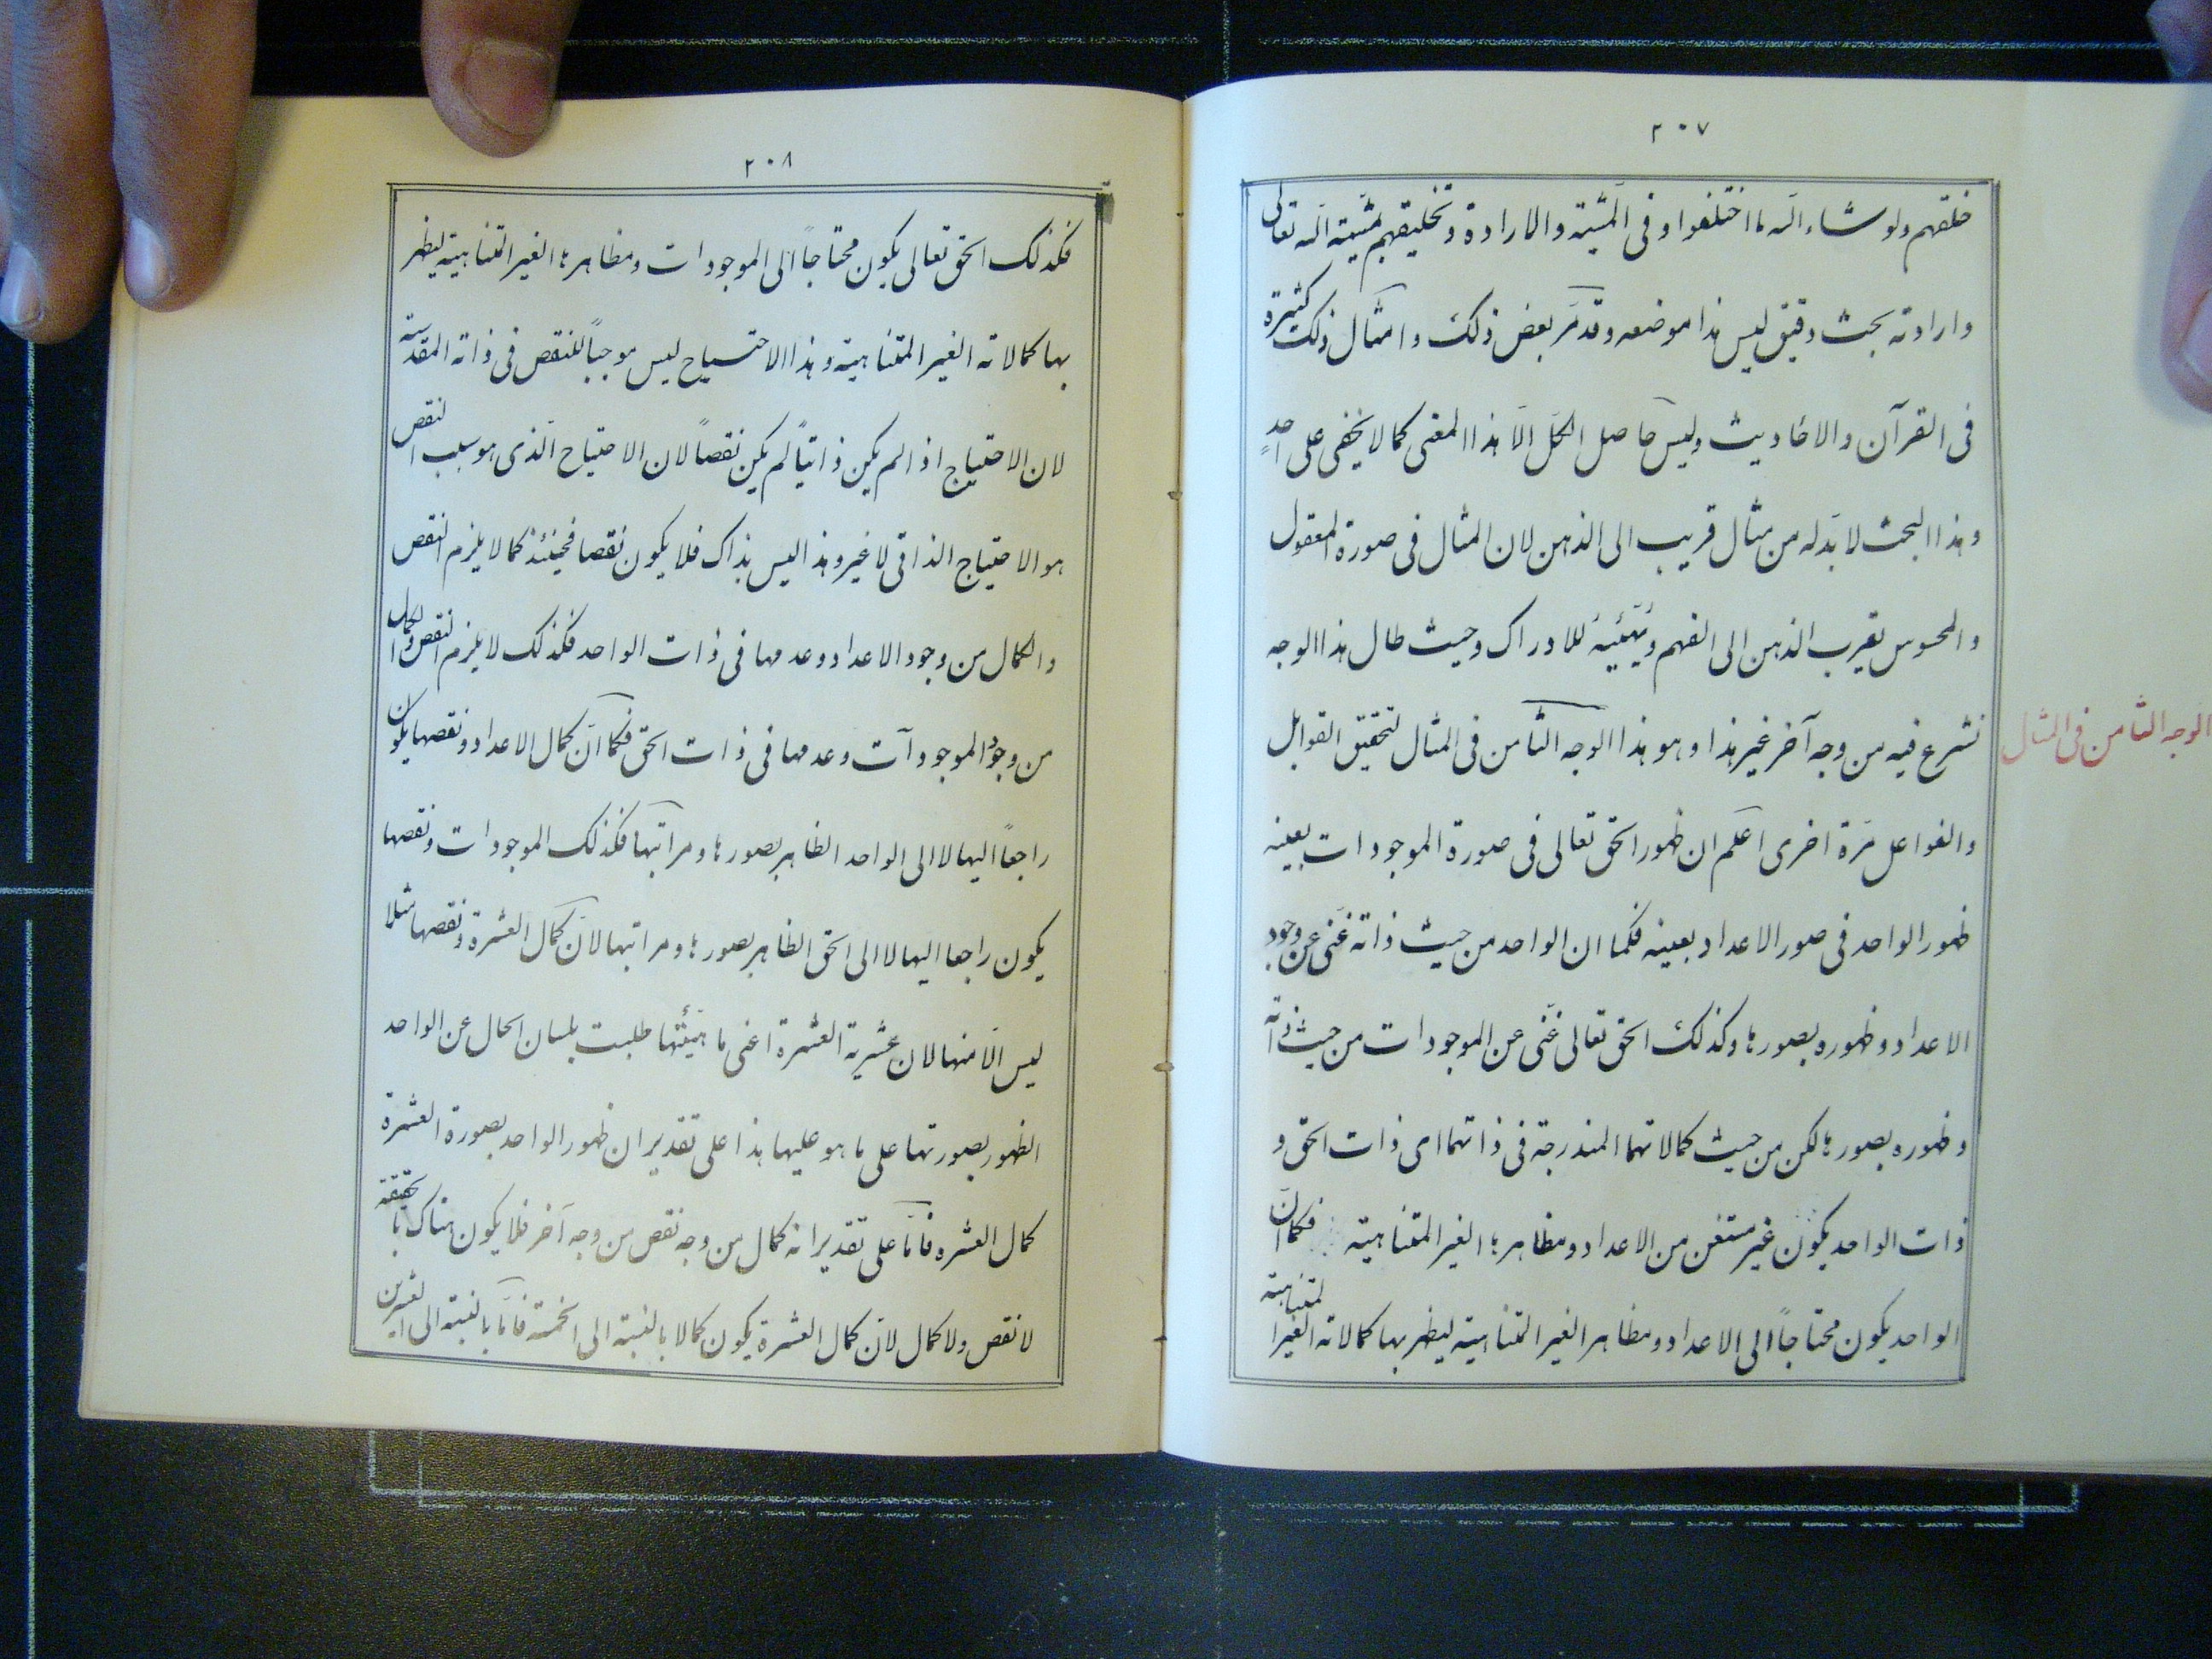 ٢٠٧
خلقهم ولو شاء الله ما اختلفوا وفى المشية والارادة وتخليقهم بمشيته الله تعالى
وارادته بحث دقيق ليس هذا موضعه وقد مَر بعض ذلك وامثال ذلك كثيرة
فى القرآن والاحاديث وليس حاصل الكل الّا هذا المعنى كما لا يخفى على احدٍ
وهذا البحث لا بدّ له من مثال قريب الى الذهن لان المثال فى صورة المعقول
والمحسوس يقرب الذهن الى الفهم ويُهيّئه للادراك وحيث طال هذا الوجه
نشرع فيه من وجه آخر غير هذا وهو هذا الوجه الثامن فى المثال لتحقيق القوابل
الوجه الثامن فى المثال
والفواعل مَرّة اخرى اعلم ان ظهور الحق تعالى فى صورة الموجودات بعينه
ظهور الواحد فى صور الاعداد بعينه فكما ان الواحد من حيث ذاته غنى عن وجود
الاعداد وظهوره بصورها وكذلك الحق تعالى غنّى عن الموجودات من حيث ذاته
وظهوره بصورها لكن من حيث كمالاتهما المندرجة فى ذاتهما اى ذات الحق و
ذات الواحد يكون غير مستغن من الاعداد ومظاهرها الغير المتناهية فكما انّ
الواحد يكون محتاجاً الى الاعداد ومظاهر الغير المتناهية ليظهر بها كمالاته الغير المتناهية
٢٠٨
فكذلك الحق تعالى يكون محتاجاً الى الموجودات ومظاهرها الغير المتناهية ليظهر
بها كمالاته الغير المتناهية وهذا الاحتياج ليس موجباً للنقص فى ذاته المقدسة
لان الاحتياج اذا لم يكن ذاتيّاً لم يكن نقصاً لان الاحتياج الّذى هو سبب النقص
هو الاحتياج الذاتى لا غير وهذا ليس بذاك فلا يكون نقصا فحينئذ كما لا يلزم النقص
والكمال من وجود الاعداد وعدمها فى ذات الواحد فكذلك لا يلزم النقص والكمال
من وجود الموجودات وعدمها فى ذات الحق فكما انّ كمال الاعداد ونقصها يكون
راجعاً اليها لا الى الواحد الظاهر بصورها ومراتبها فكذلك الموجودات ونقصها
يكون راجعا اليها لا الى الحق الظاهر بصورها ومراتبها لانّ كمال العشرة ونقصها مثلا
ليس الّا منها لان عشرية العشرة اعنى ماهيّتها طلبت بلسان الحال عن الواحد
الظهور بصورتها على ما هو عليها هذا على تقدير ان ظهور الواحد بصورة العشرة
كمال العشره فامّا على تقدير انه كمال من وجه نقص من وجه آخر فلا يكون هناك بالحقيقة
لا نقص ولا كمال لانّ كمال العشرة يكون كمالا بالنسبة الى الخمسة فامّا بالنسبة الى العشرين